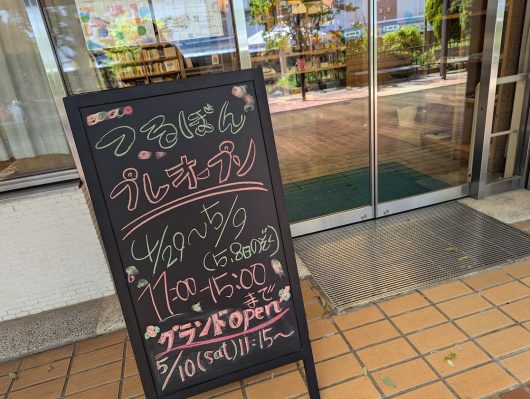 つるぼん
プレオープン
4/29〜5/9
(5.8日のぞく)
11:00-15:00
まで
グランドopen
5/10(sat)11:15〜